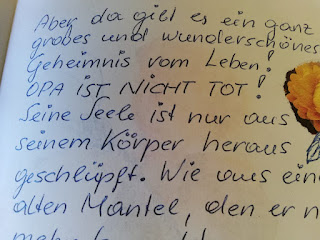 Aber da gibt es ein ganz
großes und wunderschönes
Geheimnis vom Leben!
OPA IST NICHT TOT!
Seine Seele ist nur aus
seinem Körper heraus
geschlüpft. Wie aus eine
alten Mantel, den er n